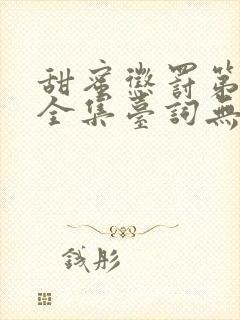 甜蜜懲罰第
全集臺詞無
錢彤